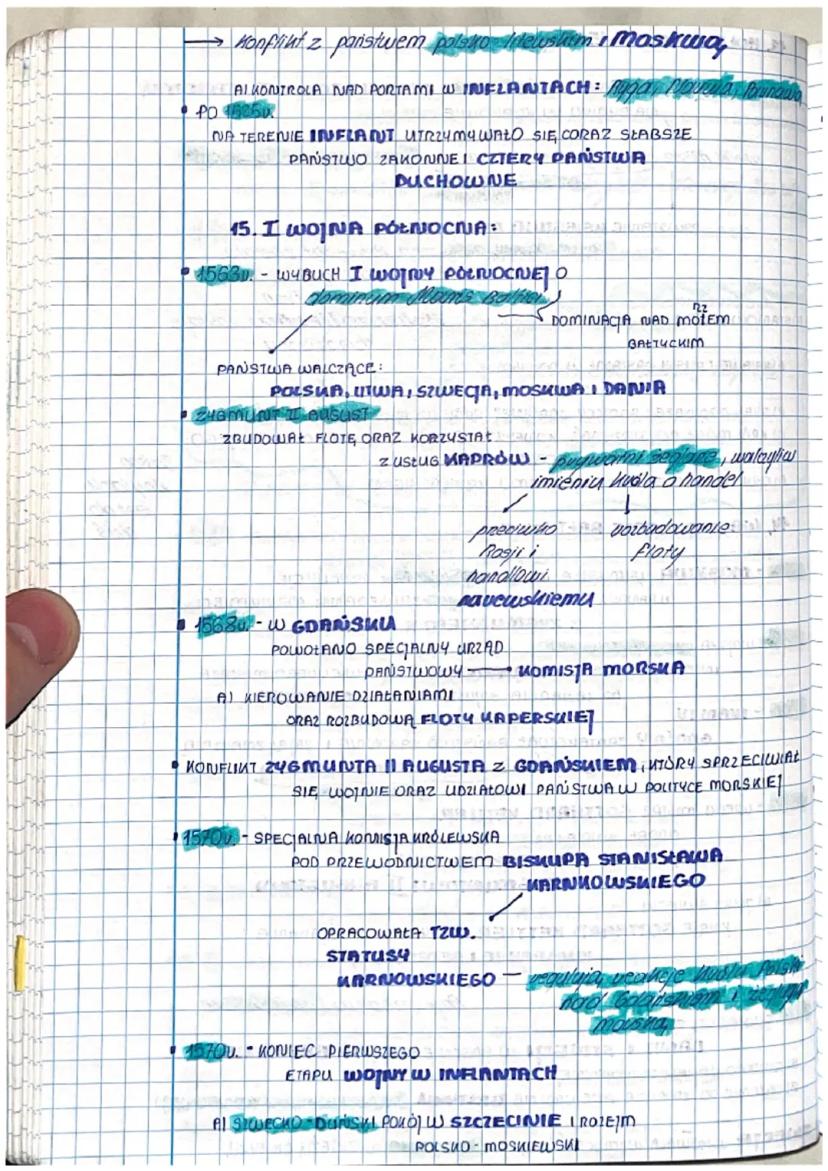 → Konflikt z państwem polsko-litewskim i Moskwą
A) KONTROLA NAD PORTAMI W INFLANTACH: Ryga, Narewa, Parnawa
• PO 1525r.
NA TERENIE INFLANT UTRZYMYWAŁO SIĘ CORAZ SŁABSZE
PAŃSTWO ZAKONNE I CZTERY PAŃSTWA
DUCHOWNE
15. I WOJNA PÓŁNOCNA:
• 1563r. - WYBUCH I WOJNY PÓŁNOCNEJ O
dominium Maris Baltici
DOMINACJA NAD MOŻEM
RZ
BAŁTYCKIM
PAŃSTWA WALCZĄCE:
POLSKA, LITWA, SZWECJA, MOSKWA I DANIA
• ZYGMUNT II AUGUST
ZBUDOWAŁ FLOTĘ ORAZ KORZYSTAŁ
Z USŁUG KAPRÓW - prywatni żeglarze, walczyli w
imieniu króla o handel
przeciwko rozbudowanie
Rosji i floty
handlowi
narewskiemu
• 1568r. - W GDAŃSKU
POWOŁANO SPECJALNY URZĄD
PAŃSTWOWY → KOMISJA MORSKA
A) KIEROWANIE DZIAŁANIAMI
ORAZ ROZBUDOWĄ FLOTY KAPERSKIEJ
• KONFLIKT ZYGMUNTA II AUGUSTA Z GDAŃSKIEM, KTÓRY SPRZECIWIAŁ
SIĘ WOJNIE ORAZ UDZIAŁOWI PAŃSTWA W POLITYCE MORSKIEJ
• 1570r. - SPECJALNA KOMISJA KRÓLEWSKA
POD PRZEWODNICTWEM BISKUPA STANISŁAWA
KARNKOWSKIEGO
OPRACOWAŁA TZW.
STATUSY
KARNOWSKIEGO - regulują reakcje króla Polski
nad Gdańskiem i żeglugi
morską
• 1570r. - KONIEC PIERWSZEGO
ETAPU WOJNY W INFLANTACH
A) SZWECKO-DUŃSKI POKÓJ W SZCZECINIE I ROZEJM
POLSKO-MOSKIEWSKI